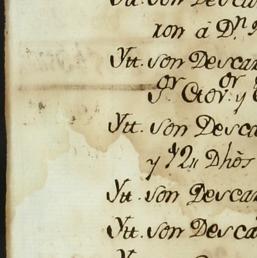 Ytt. son Desca
ron á D.ⁿ
Ytt. son Descar
Ytt. son Desca
y 12„ Dhõs
Ytt. son Descar
Ytt. son Desca